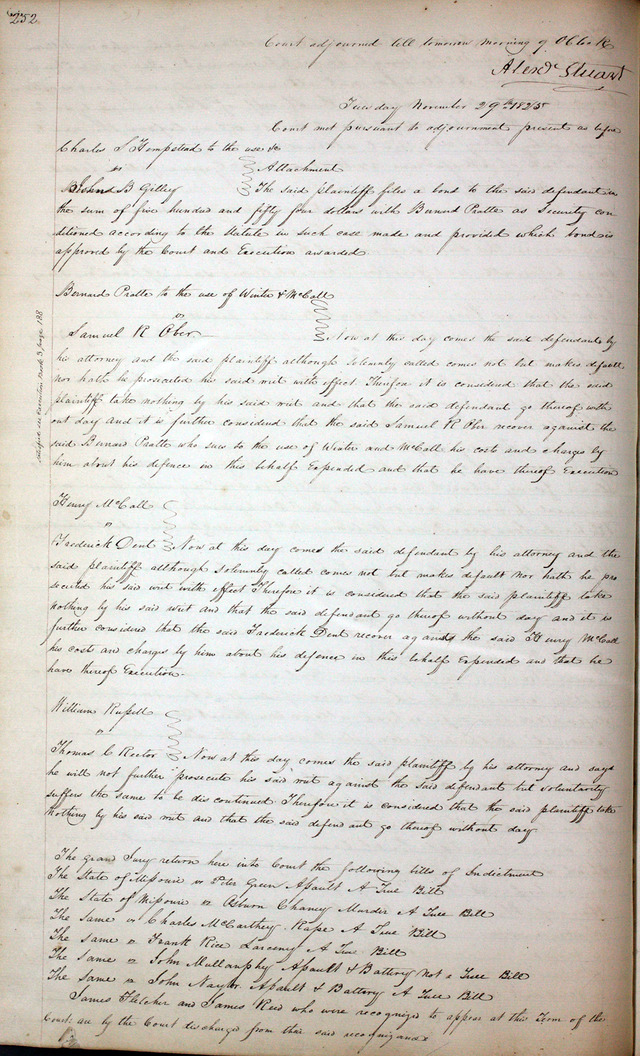 252
Court adjourned till tomorrow morning 9 OClock
Alexdr Stuart
Tuesday November 29th 1825
Court met pursuant to adjournment present as before
Charles S Hempstead to the use &c
vs
Attachment
John B Gilley
The said plaintiff files a bond to the said defendant in
the sum of five hundred and fifty four dollars with Bernard Pratte as Security con
ditioned according to the Statute in such case made and provided which bond is
approved by the Court and Execution awarded
Bernard Pratte to the use of Winter & McCall
vs
Samuel R Ober
Now at this day comes the said defendant by
his attorney and the said plaintiff although solemnly called comes not but makes default
nor hath he prosecuted his said writ with effect Therefore it is considered that the said
plaintiff take nothing by his said writ and that the said defendant go thereof with
out day and it is further considered that the said Samuel R Ober recover against the
said Bernard Pratte who sues to the use of Winter and McCall his costs and charges by
him about his defence in this behalf Expended and that he have thereof Execution
in Execution Book 3, page 188
Henry McCall
vs
Frederick Dent
Now at this day comes the said defendant by his attorney and the
said plaintiff although solemnly called comes not but makes default nor hath he pro
secuted his said writ with effect Therefore it is considered that the said plaintiff take
nothing by his said writ and that the said defendant go thereof without day and it is
further considered that the said Frederick Dent recover against the said Henry McCall
his costs and charges by him about his defence in this behalf Expended and that he
have thereof Execution
William Russell
vs
Thomas C Rector
Now at this day comes the said plaintiff by his attorney and says
he will not further prosecute his said writ against the said defendant but voluntarily
suffers the same to be discontinued Therefore it is considered that the said plaintiff take
nothing by his said writ and that the said defendant go thereof without day
The grand Jury return here into Court the following bills of Indictment
The State of Missouri vs Peter Green Assault A True Bill
The State of Missouri vs Chaney Murder A True Bill
The same vs Charles McCarthey Rape A True Bill
The same vs Frank Rice Larceny A True Bill
The same vs John Mullanphy Assault & Battery Not a True Bill
The same vs John Naylor Assault & Battery A True Bill
James Fletcher and James Reed who were recognized to appear at this Term of the
Court are by the Court discharged from their said recognizance